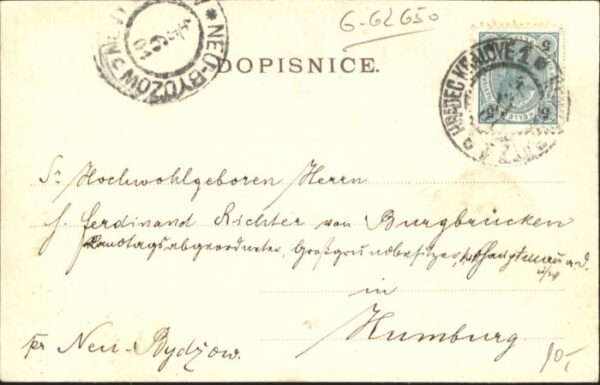 G-GL 650
NEU-BYDŽOV
6
01
DOPISNICE.
HRADEC KRÁLOVÉ 1
Sr Hochwohlgeboren Herrn
Ferdinand Richter von Burgbrücken
Landtagsabgeordneter, Großgrundbesitzer, Hauptmann a. d.
in
Humburg
pr Neu-Bydžow.
10,-